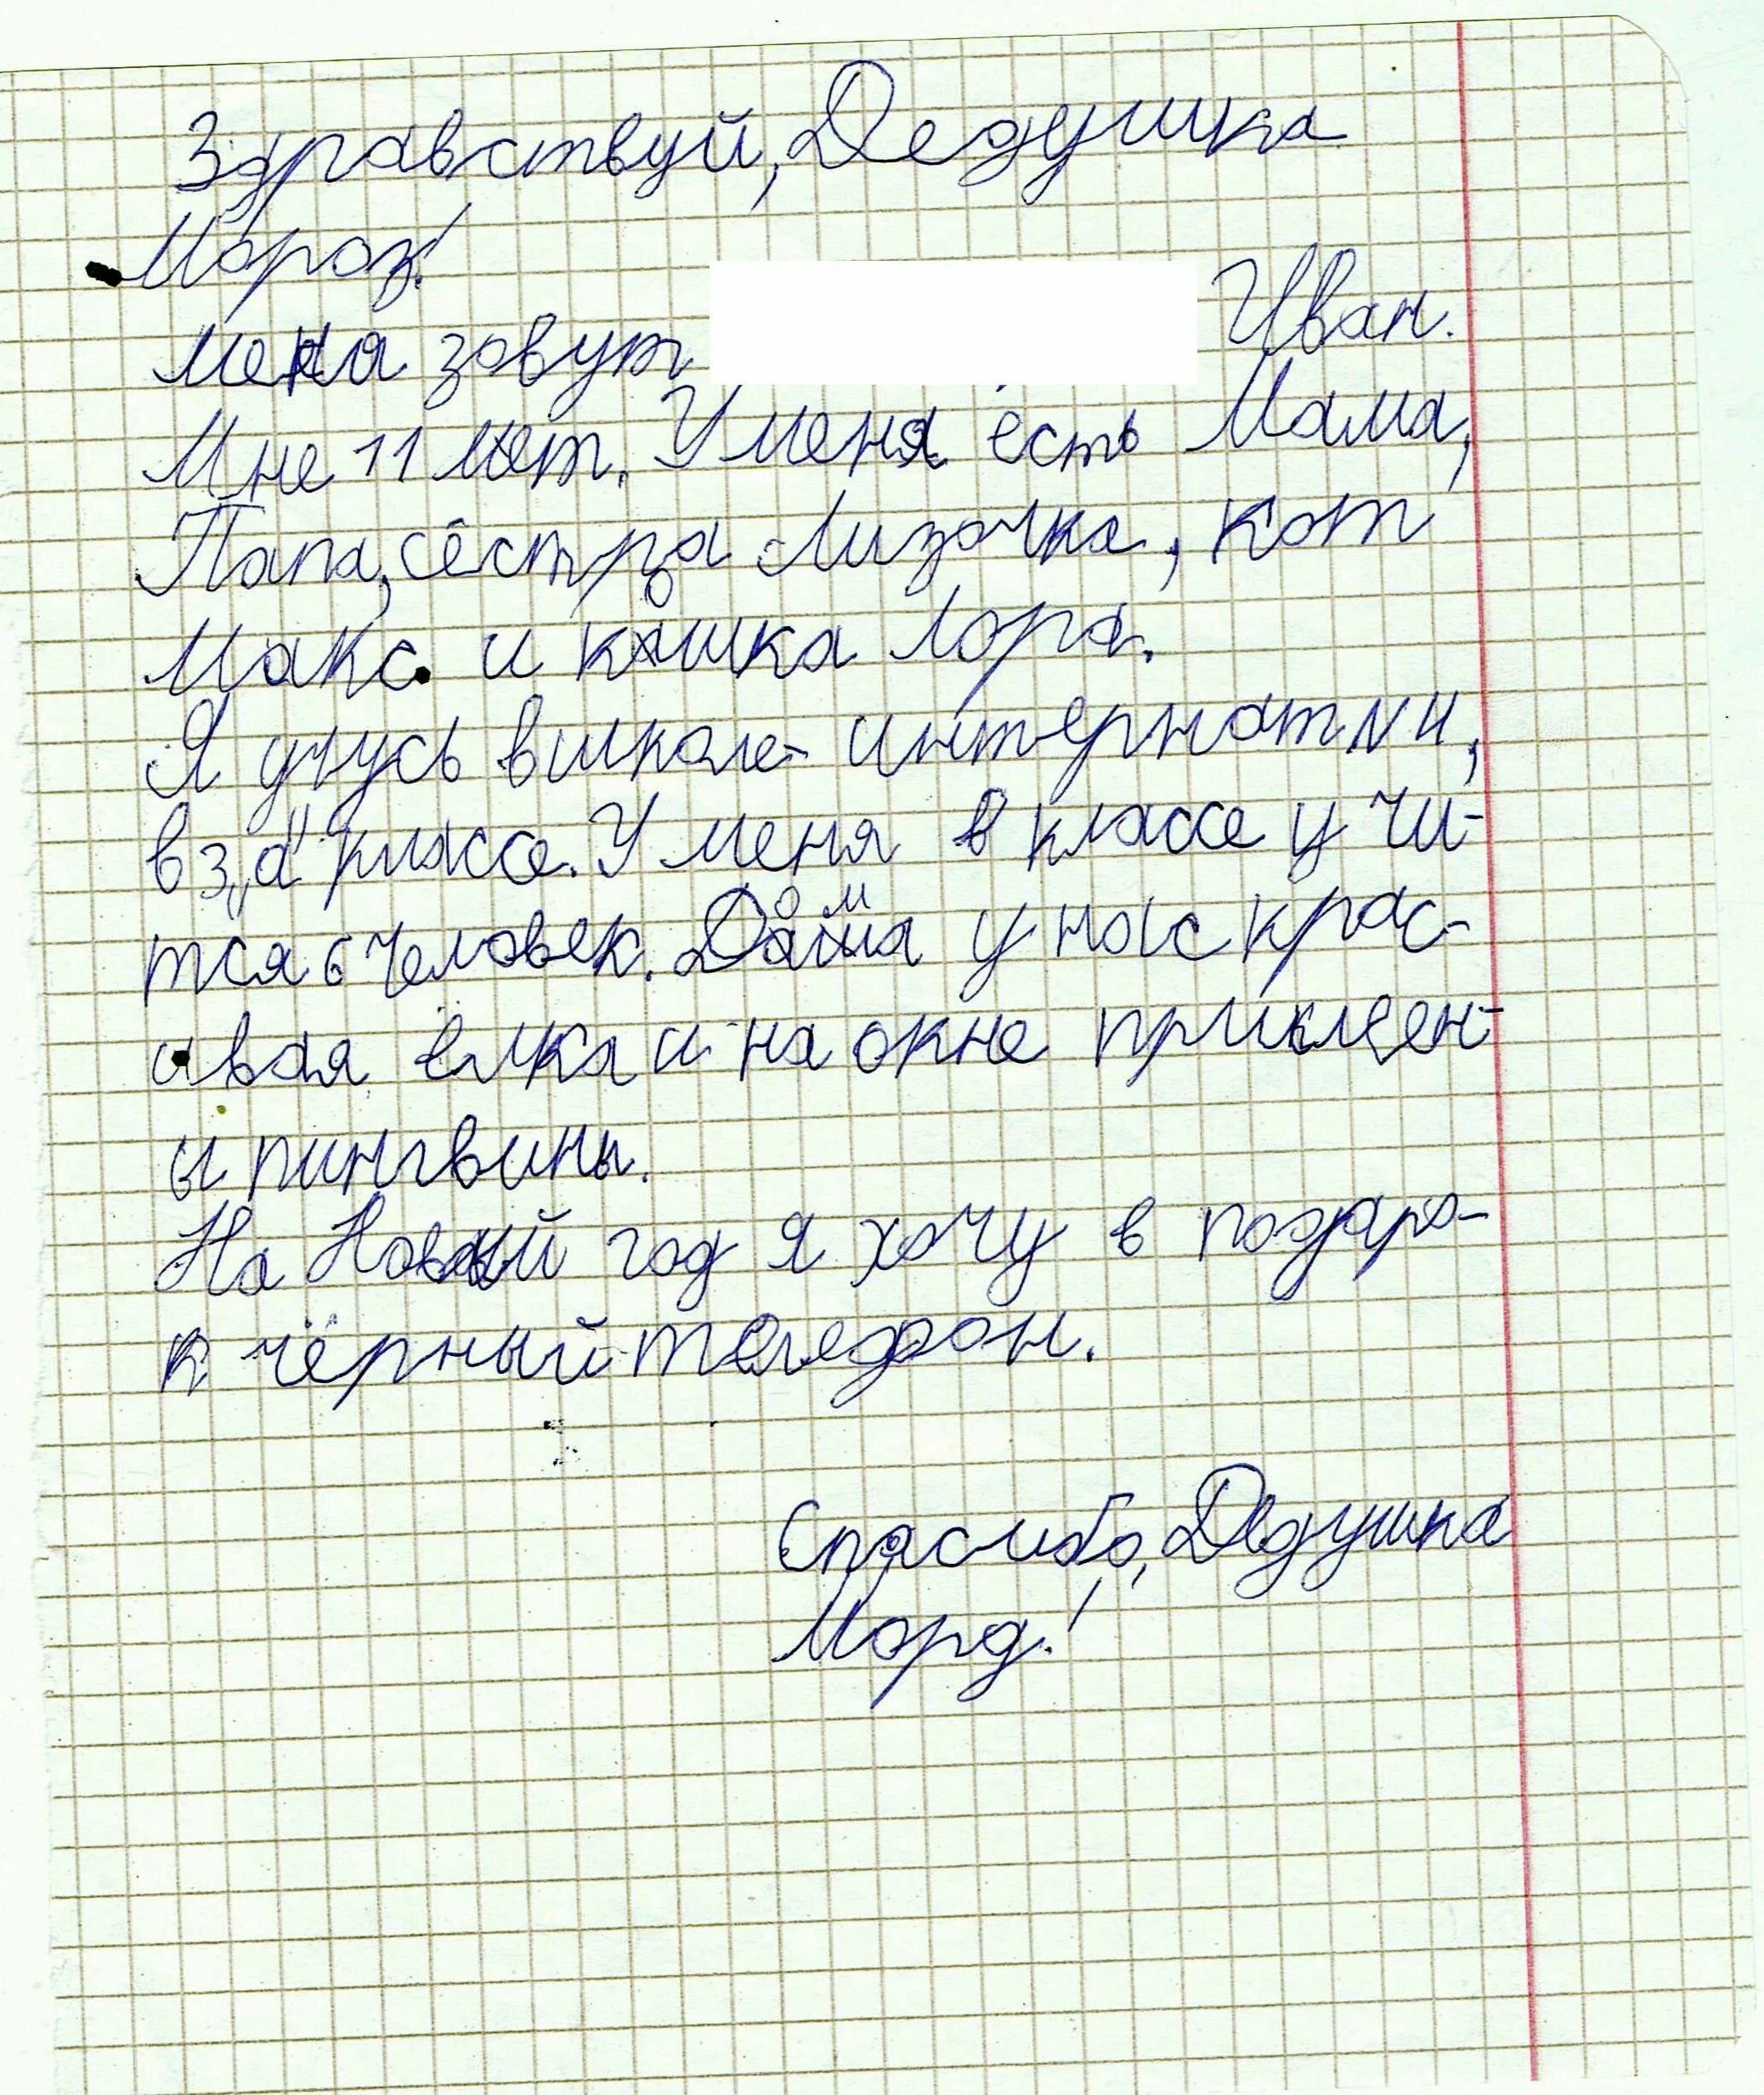 Здравствуй, Дедушка
Мороз!
меня зовут Иван.
Мне 11 лет. У меня есть Мама,
Папа, сестра Лизочка, кот
Макс и кошка Лора.
Я учусь в школе- интернат N4,
в 3 "а" классе. У меня в классе учи-
тся 6 человек. Дома у нас крас-
ивая ёлка и на окне приклеен-
ы пингвины.
На Новый год я хочу в подаро-
к чёрный телефон.
Спасибо, Дедушка
Морд!